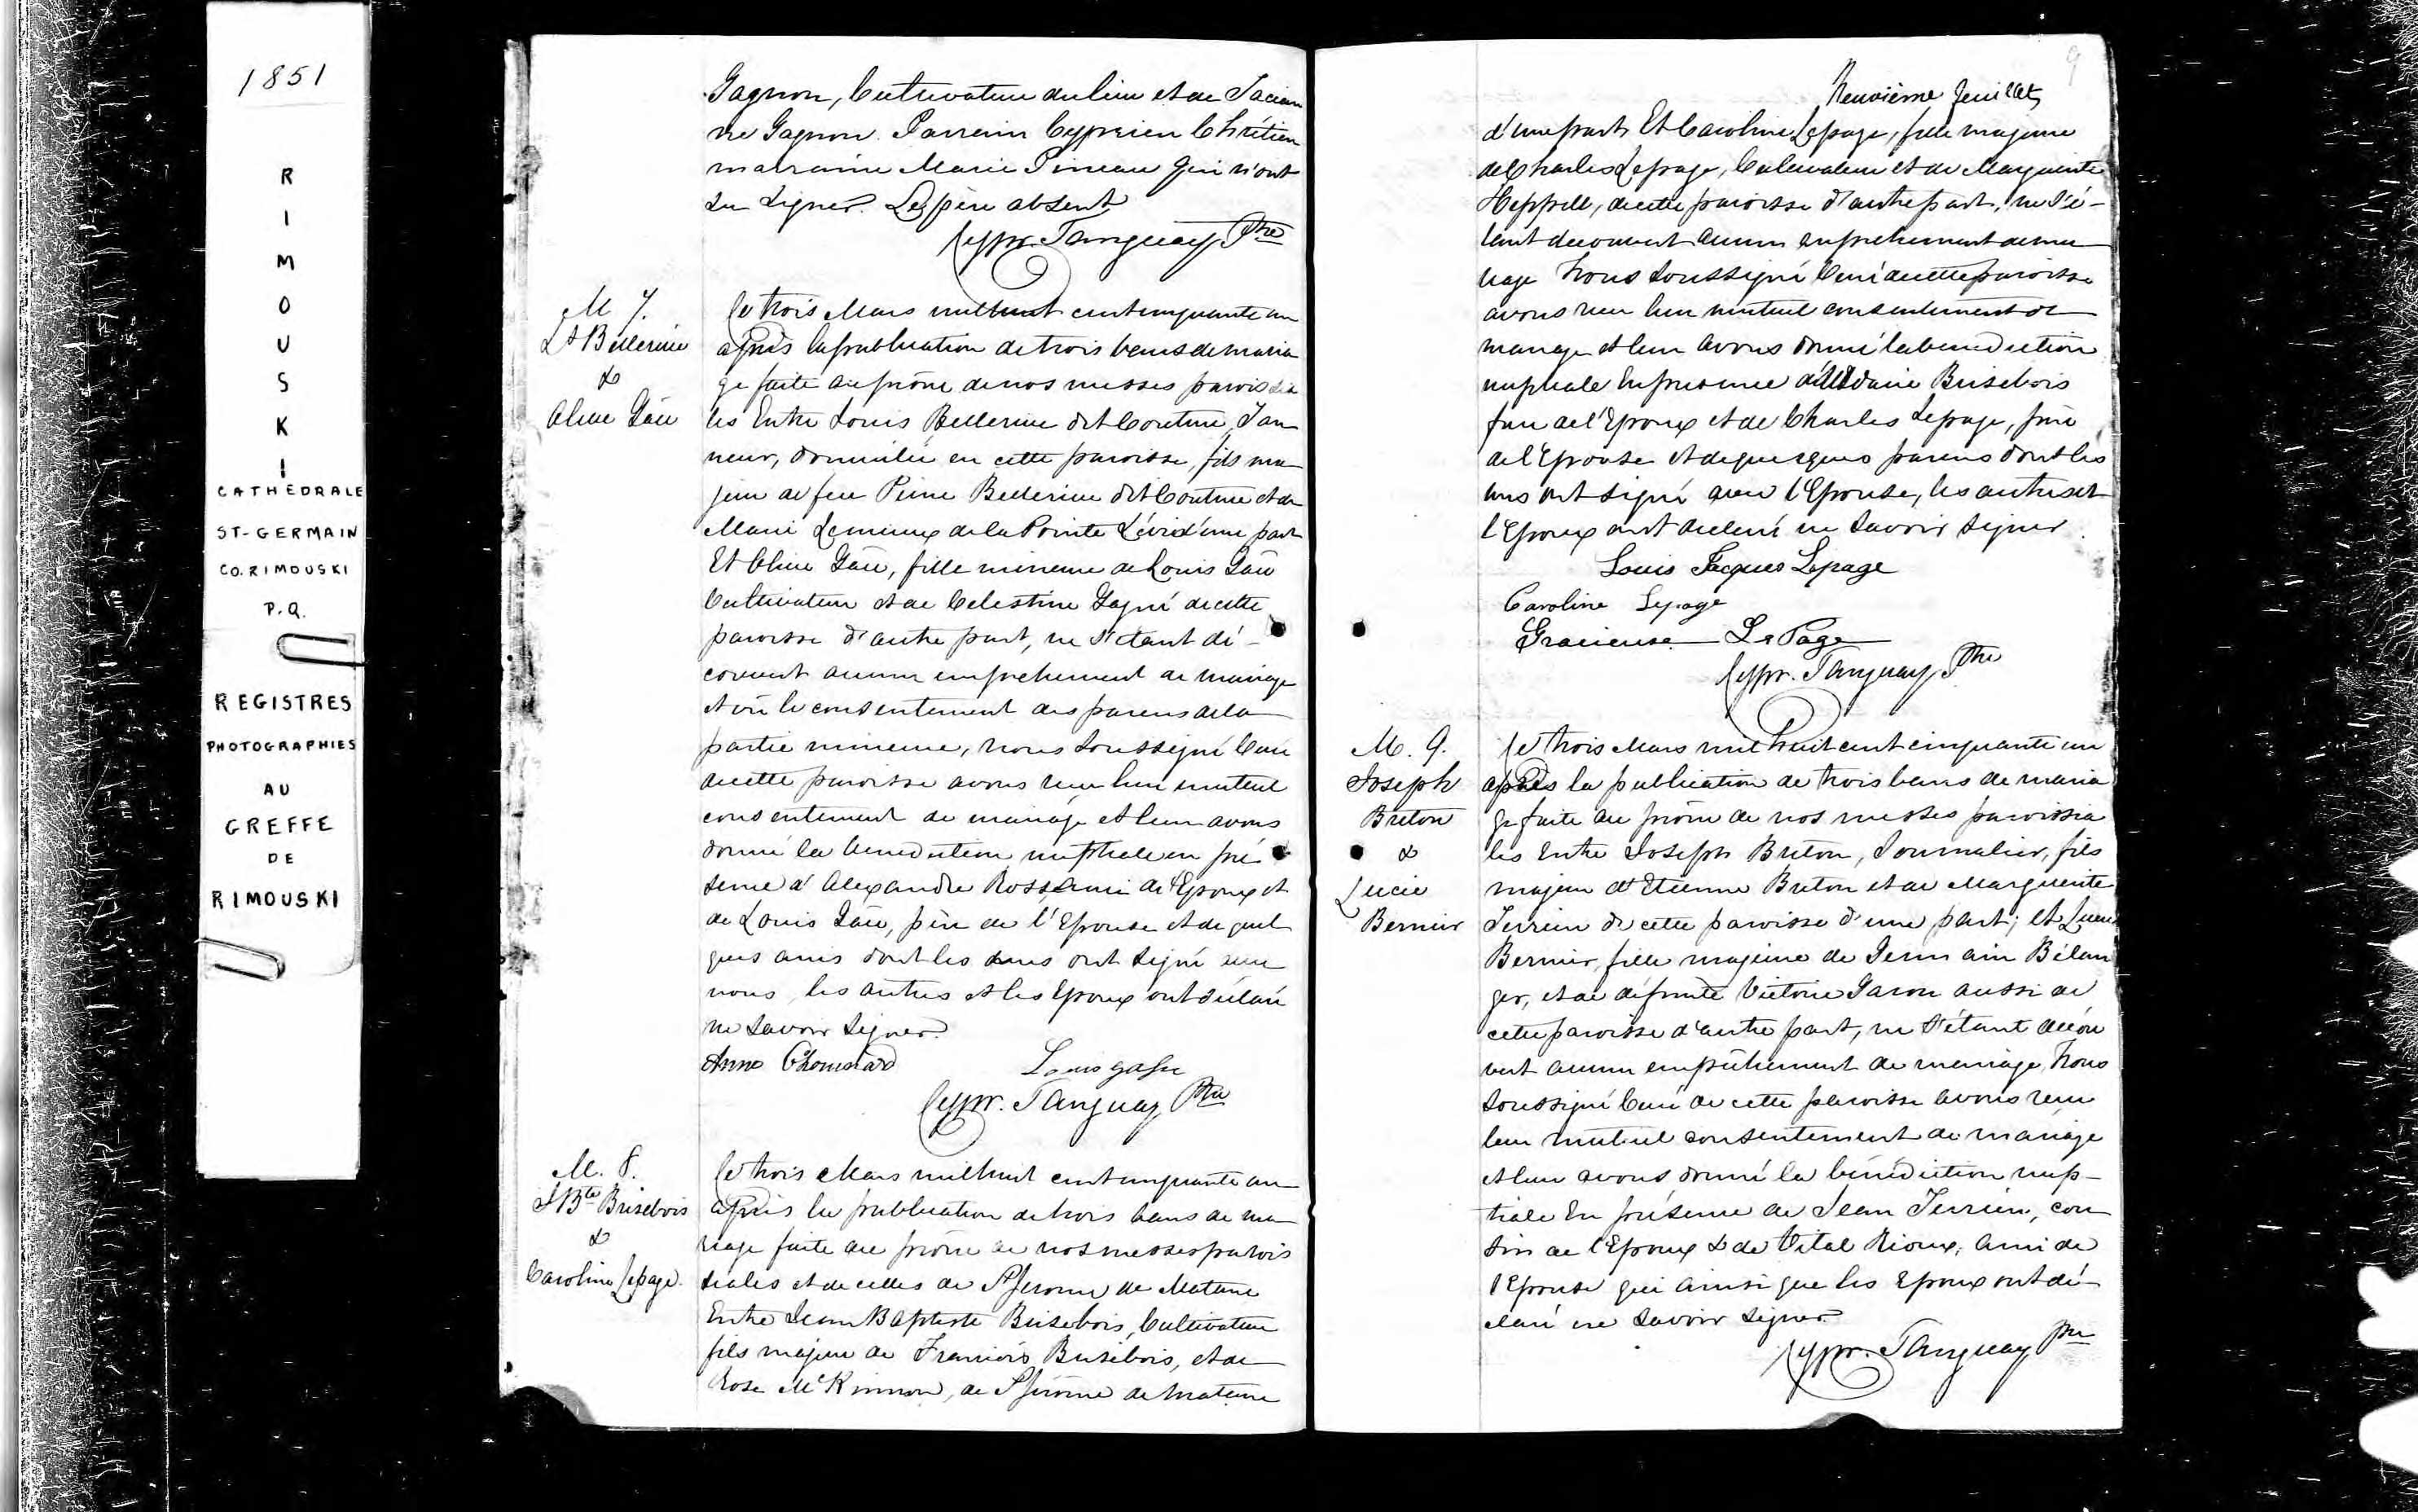 1851
R
I
M
O
U
S
K
I
CATHÉDRALE
ST-GERMAIN
CO. RIMOUSKI
P.Q.
REGISTRES
PHOTOGRAPHIES
AU
GREFFE
DE
RIMOUSKI
Gagnon, Cultivateur du lieu et de
Gagnon. Parrain Cyprien Chrétien
marraine Marie Pineau qui n'ont
su signer. Le père absent
Cypr. Tanguay Ptre
M 7.
Ls Bellerive
&
Olive Gâu
Le trois Mars mil huit cent cinquante un
après la publication de trois bans de maria
ge faite au prône de nos messes paroissia
les Entre Louis Bellerive dit Couture, Tan
neur, domicilié en cette paroisse, fils ma
jeur de feu Pierre Bellerive dit Couture et de
Marie Lemieux de la Pointe Lévi d'une part
Et Olive Gâu, fille mineure de Louis Gâu
Cultivateur et de Celestine Gagné de cette
paroisse d'autre part, ne s'étant dé-
couvert aucun empechement de mariage
et vû le consentement des parens de la
partie mineure, nous soussigné Curé
de cette paroisse avons reçu leur mutuel
consentement de mariage et leur avons
donné la benediction nuptiale en pré
sence d'Alexandre Ross, ami de l'Epoux et
de Louis Gâu, père de l'Epouse et de quel
ques amis dont les uns ont signé avec
nous, les autres et les Epoux ont déclaré
ne savoir signer.
Anne Chouinard Louis
Cypr. Tanguay Ptre
M. 8.
J Bte Brisebois
&
Caroline Lepage.
Le trois Mars mil huit cent cinquante un
après la publication de trois bans de ma
riage faite au prône de nos messes parois
siales et de celles de St Jerome de Matane
Entre Jean Baptiste Brisebois, Cultivateur
fils majeur de Francois Brisebois, et de
Rose McKinnon, de St Jérome de Matane
9
Neuvième feuillet
d'une part Et Caroline Lepage, fille majeure
de Charles Lepage, Cultivateur et de Marguerite
Heppell, de cette paroisse d'autre part, ne s'é-
tant decouvert aucun empechement de ma
riage Nous soussigné Curé de cette paroisse
avons reçu leur mutuel consentement de
mariage et leur avons donné la benediction
nuptiale En presence Brisebois
de l'Epoux et de Charles Lepage, père
de l'Epouse et de quelques parens dont les
uns ont signé avec l'Epouse, les autres et
l'Epoux ont declaré ne savoir signer.
Louis Jacques Lepage
Caroline Lepage
Gracieuse LePage
Cypr. Tanguay Ptre
M. 9.
Joseph
Breton
&
Lucie
Bernier
Le trois Mars mil huit cent cinquante un
après la publication de trois bans de maria
ge faite au prône de nos messes paroissia
les Entre Joseph Breton, Journalier, fils
majeur d'Etienne Breton et de Marguerite
Terrien de cette paroisse d'une part; et Lucie
Bernier, fille majeure de Germain Bélan
ger, et de défunte Victoire Garon aussi de
cette paroisse d'autre part, ne s'étant décou
vert aucun empêchement de mariage, Nous
soussigné Curé de cette paroisse avons reçu
leur mutuel consentement de mariage
et leur avons donné la bénédiction nup-
tiale En présence de Jean Terrien, cou
sin de l'Epoux & de Vital Rioux, ami de
l'Epouse qui ainsi que les Epoux ont dé-
claré ne savoir signer.
Cypr. Tanguay Ptre